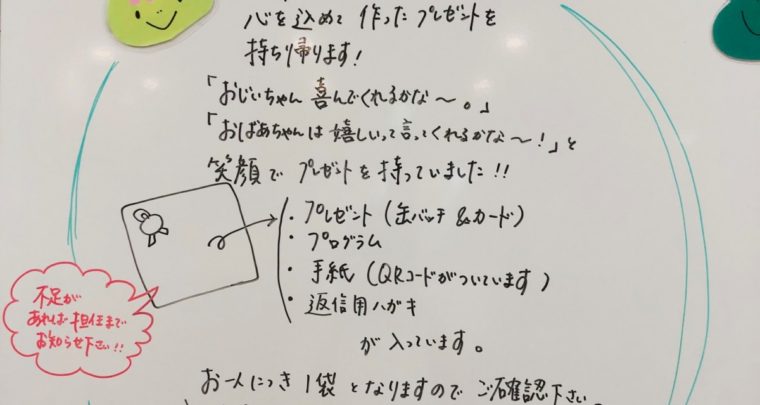 心を込めて 作った プレゼントを
持ち帰ります!
「おじいちゃん 喜んでくれるかな〜。」
「おばあちゃんは 嬉しいって言ってくれるかな〜!」と
笑顔で プレゼントを 持っていました!!
・プレゼント (缶バッチ &カード)
・プログラム
・手紙 (QRコードがついています)
・返信用ハガキ
が 入っています。
不足が
あれば 担任まで
お知らせ下さい!!
お一人につき 1袋 となりますので ご確認下さい。